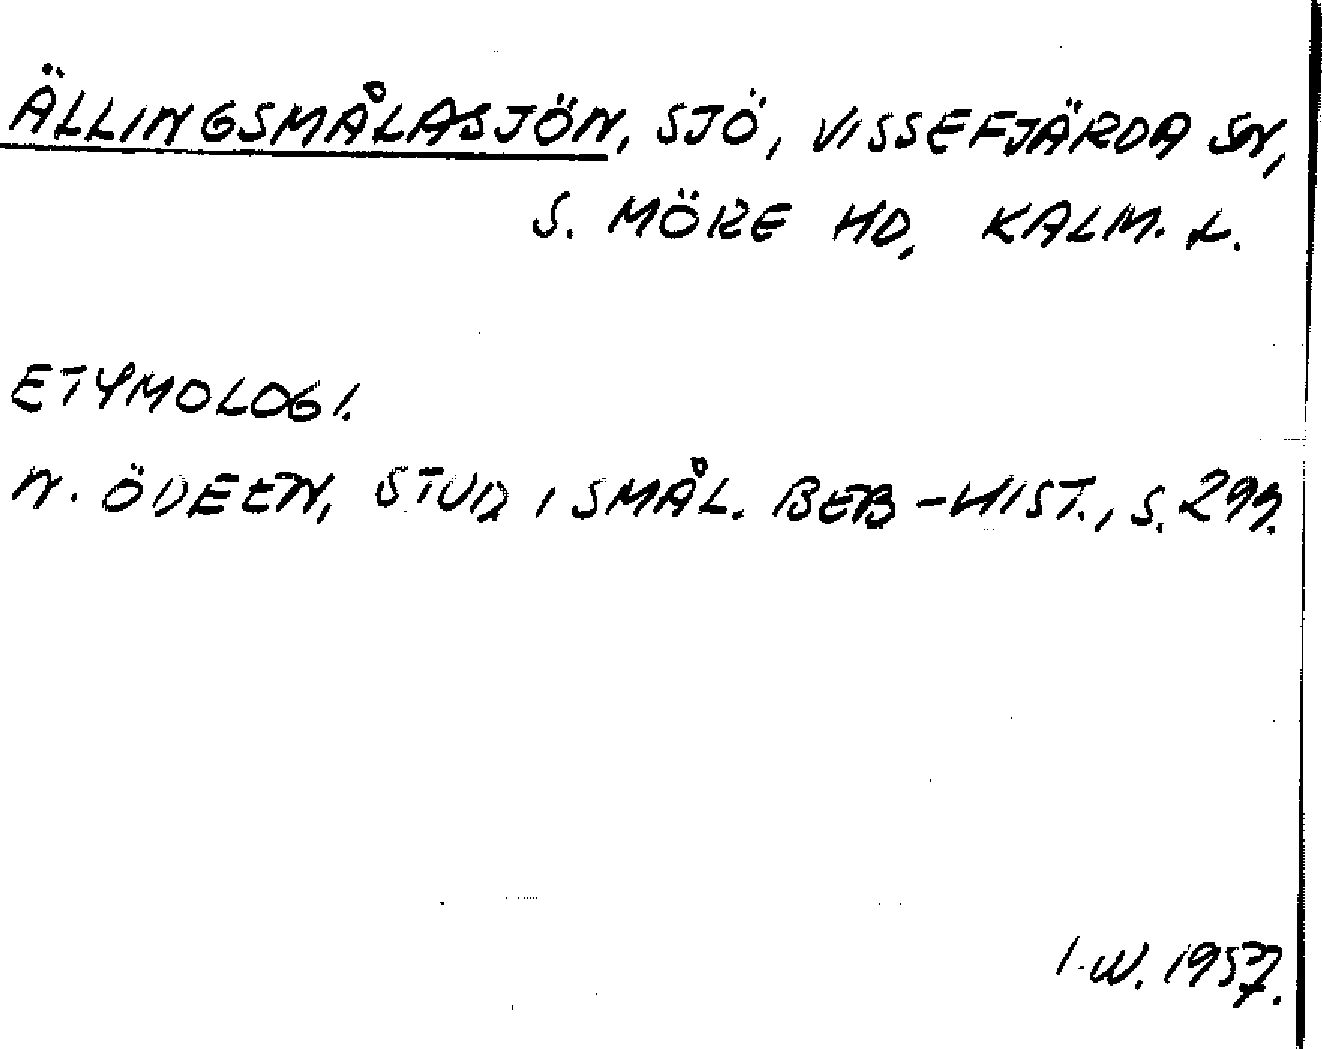 ÄLLINGSMÅLASJÖN, SJÖ, VISSEFJÄRDA SN,
S. MÖRE HD, KALM. L.
ETYMOLOGI.
N. ÖDEEN, STUD I SMÅL. BEB-HIST., S.
I.W. 1957.